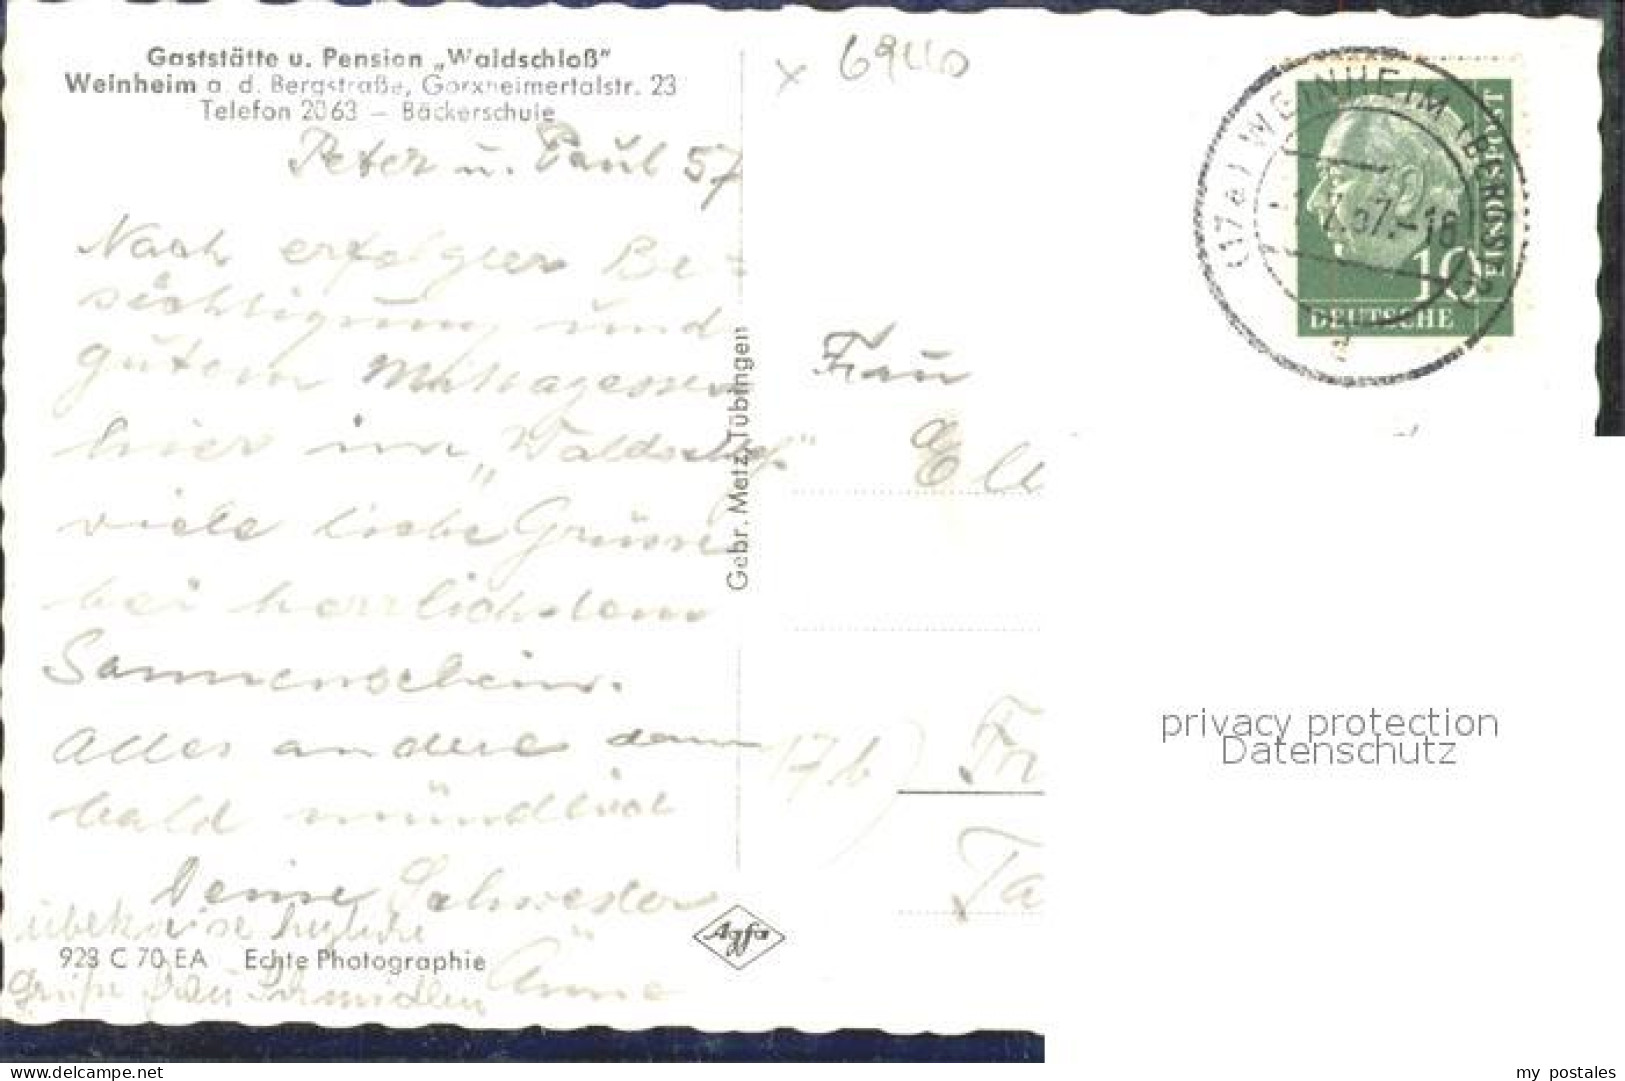 Gaststätte u. Pension „Waldschloß"
Weinheim a. d. Bergstraße, Gorxheimertalstr. 23
Telefon 2063 – Bäckerschule
Peter u. Paul 57
Nach erfolgter Be=
sichtigung und
gutem Mittagessen
hier im „Waldschloß"
viele liebe Grüsse
bei herrlichstem
Sonnenschein.
Alles andere dann
bald mündlich
Deine Schwester
Änne
Grüße Frau Schmidlen
923 C 70 EA Echte Photographie
Gebr. Metz, Tübingen
Agfa
x 69410
(17a) WEINHEIM (BERGSTR)
7.57.-16
a
10
DEUTSCHE
BUNDESPOST
Frau
Ell
17b) Fr
Ta
privacy protection
Datenschutz
www.delcampe.net
my_postales